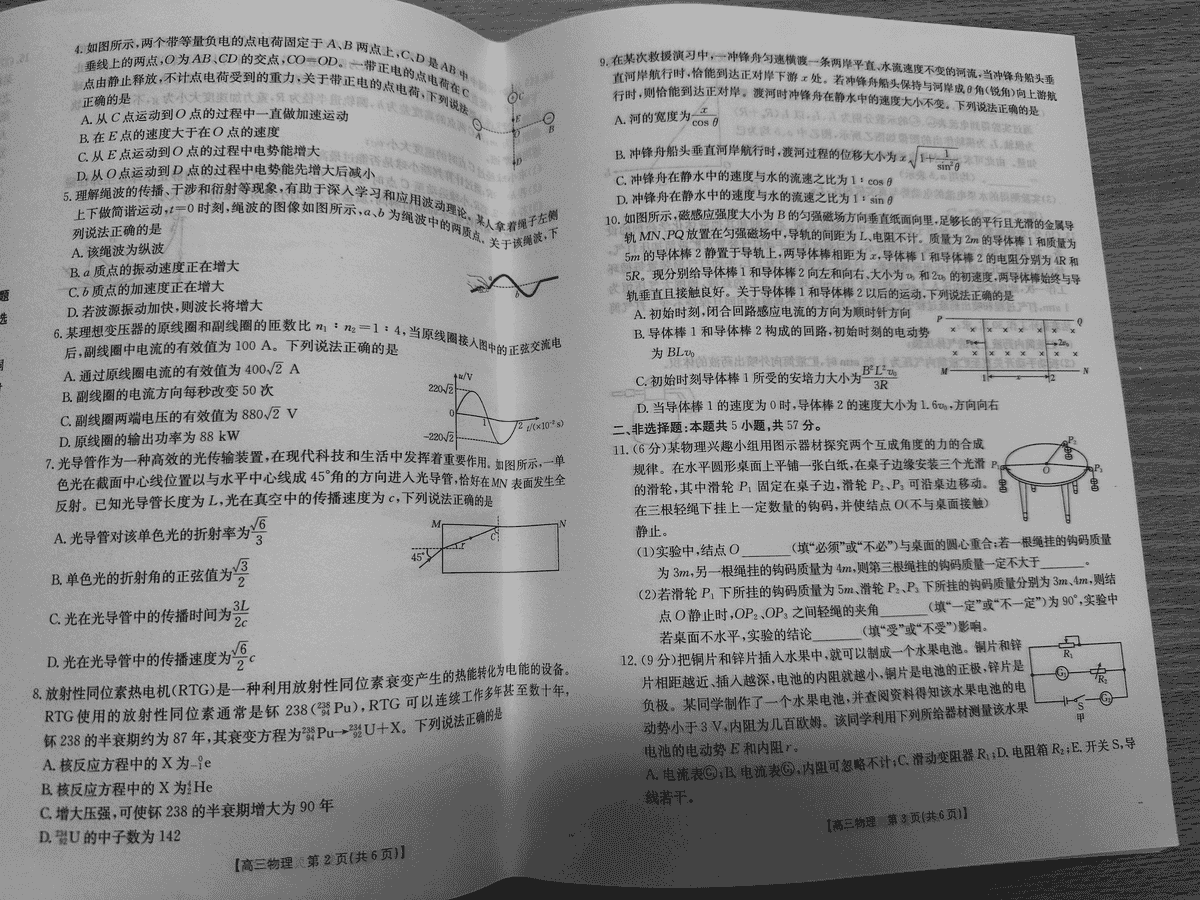 4. 如图所示,两个带等量负电的点电荷固定于 A、B 两点上,C、D 是 AB 中
垂线上的两点,O 为 AB、CD 的交点,CO=OD。一带正电的点电荷在 C
点由静止释放,不计点电荷受到的重力,关于带正电的点电荷,下列说法
正确的是
A. 从 C 点运动到 O 点的过程中一直做加速运动
B. 在 E 点的速度大于在 O 点的速度
C. 从 E 点运动到 O 点的过程中电势能增大
D. 从 O 点运动到 D 点的过程中电势能先增大后减小
C
E
O
A
B
D
5. 理解绳波的传播、干涉和衍射等现象,有助于深入学习和应用波动理论。某人拿着绳子左侧
上下做简谐运动,t=0 时刻,绳波的图像如图所示,a、b 为绳波中的两质点。关于该绳波,下
列说法正确的是
A. 该绳波为纵波
B. a 质点的振动速度正在增大
C. b 质点的加速度正在增大
D. 若波源振动加快,则波长将增大
a
b
6. 某理想变压器的原线圈和副线圈的匝数比 n₁∶n₂=1∶4,当原线圈接入图中的正弦交流电
后,副线圈中电流的有效值为 100 A。下列说法正确的是
A. 通过原线圈电流的有效值为 400√2 A
B. 副线圈的电流方向每秒改变 50 次
C. 副线圈两端电压的有效值为 880√2 V
D. 原线圈的输出功率为 88 kW
u/V
220√2
0
1
2
t/(×10⁻² s)
-220√2
7. 光导管作为一种高效的光传输装置,在现代科技和生活中发挥着重要作用。如图所示,一单
色光在截面中心线位置以与水平中心线成 45°角的方向进入光导管,恰好在 MN 表面发生全
反射。已知光导管长度为 L,光在真空中的传播速度为 c,下列说法正确的是
A. 光导管对该单色光的折射率为√6/3
B. 单色光的折射角的正弦值为√3/2
C. 光在光导管中的传播时间为3L/2c
D. 光在光导管中的传播速度为√6/2 c
M
N
C
r
45°
8. 放射性同位素热电机(RTG)是一种利用放射性同位素衰变产生的热能转化为电能的设备。
RTG 使用的放射性同位素通常是钚 238(²³⁸₉₄Pu),RTG 可以连续工作多年甚至数十年,
钚 238 的半衰期约为 87 年,其衰变方程为²³⁸₉₄Pu→²³⁴₉₂U+X。下列说法正确的是
A. 核反应方程中的 X 为⁰₋₁e
B. 核反应方程中的 X 为⁴₂He
C. 增大压强,可使钚 238 的半衰期增大为 90 年
D. ²³⁴₉₂U 的中子数为 142
【高三物理 第 2 页(共 6 页)】
9. 在某次救援演习中,一冲锋舟匀速横渡一条两岸平直、水流速度不变的河流,当冲锋舟船头垂
直河岸航行时,恰能到达正对岸下游 x 处。若冲锋舟船头保持与河岸成 θ 角(锐角)向上游航
行时,则恰能到达正对岸。渡河时冲锋舟在静水中的速度大小不变。下列说法正确的是
A. 河的宽度为x/cos θ
B. 冲锋舟船头垂直河岸航行时,渡河过程的位移大小为 x√(1+1/sin²θ)
C. 冲锋舟在静水中的速度与水的流速之比为 1∶cos θ
D. 冲锋舟在静水中的速度与水的流速之比为 1∶sin θ
10. 如图所示,磁感应强度大小为 B 的匀强磁场方向垂直纸面向里,足够长的平行且光滑的金属导
轨 MN、PQ 放置在匀强磁场中,导轨的间距为 L、电阻不计。质量为 2m 的导体棒 1 和质量为
5m 的导体棒 2 静置于导轨上,两导体棒相距为 x,导体棒 1 和导体棒 2 的电阻分别为 4R 和
5R。现分别给导体棒 1 和导体棒 2 向左和向右、大小为 v₀ 和 2v₀ 的初速度,两导体棒始终与导
轨垂直且接触良好。关于导体棒 1 和导体棒 2 以后的运动,下列说法正确的是
A. 初始时刻,闭合回路感应电流的方向为顺时针方向
B. 导体棒 1 和导体棒 2 构成的回路,初始时刻的电动势
为 BLv₀
C. 初始时刻导体棒 1 所受的安培力大小为B²L²v₀/3R
D. 当导体棒 1 的速度为 0 时,导体棒 2 的速度大小为 1.6v₀,方向向右
P
Q
v₀
2v₀
M
N
1
x
2
二、非选择题:本题共 5 小题,共 57 分。
11. (6 分)某物理兴趣小组用图示器材探究两个互成角度的力的合成
规律。在水平圆形桌面上平铺一张白纸,在桌子边缘安装三个光滑
的滑轮,其中滑轮 P₁ 固定在桌子边,滑轮 P₂、P₃ 可沿桌边移动。
在三根轻绳下挂上一定数量的钩码,并使结点 O(不与桌面接触)
静止。
P₂
O
P₁
P₃
(1)实验中,结点 O ______(填“必须”或“不必”)与桌面的圆心重合;若一根绳挂的钩码质量
为 3m,另一根绳挂的钩码质量为 4m,则第三根绳挂的钩码质量一定不大于______。
(2)若滑轮 P₁ 下所挂的钩码质量为 5m、滑轮 P₂、P₃ 下所挂的钩码质量分别为 3m、4m,则结
点 O 静止时,OP₂、OP₃ 之间轻绳的夹角______(填“一定”或“不一定”)为 90°,实验中
若桌面不水平,实验的结论______(填“受”或“不受”)影响。
12. (9 分)把铜片和锌片插入水果中,就可以制成一个水果电池。铜片和锌
片相距越近、插入越深,电池的内阻就越小,铜片是电池的正极,锌片是
负极。某同学制作了一个水果电池,并查阅资料得知该水果电池的电
动势小于 3 V,内阻为几百欧姆。该同学利用下列所给器材测量该水果
电池的电动势 E 和内阻 r。
A. 电流表Ⓖ₁;B. 电流表Ⓖ₂,内阻可忽略不计;C. 滑动变阻器 R₁;D. 电阻箱 R₂;E. 开关 S,导
线若干。
R₁
G₁
R₂
S
G₂
甲
【高三物理 第 3 页(共 6 页)】